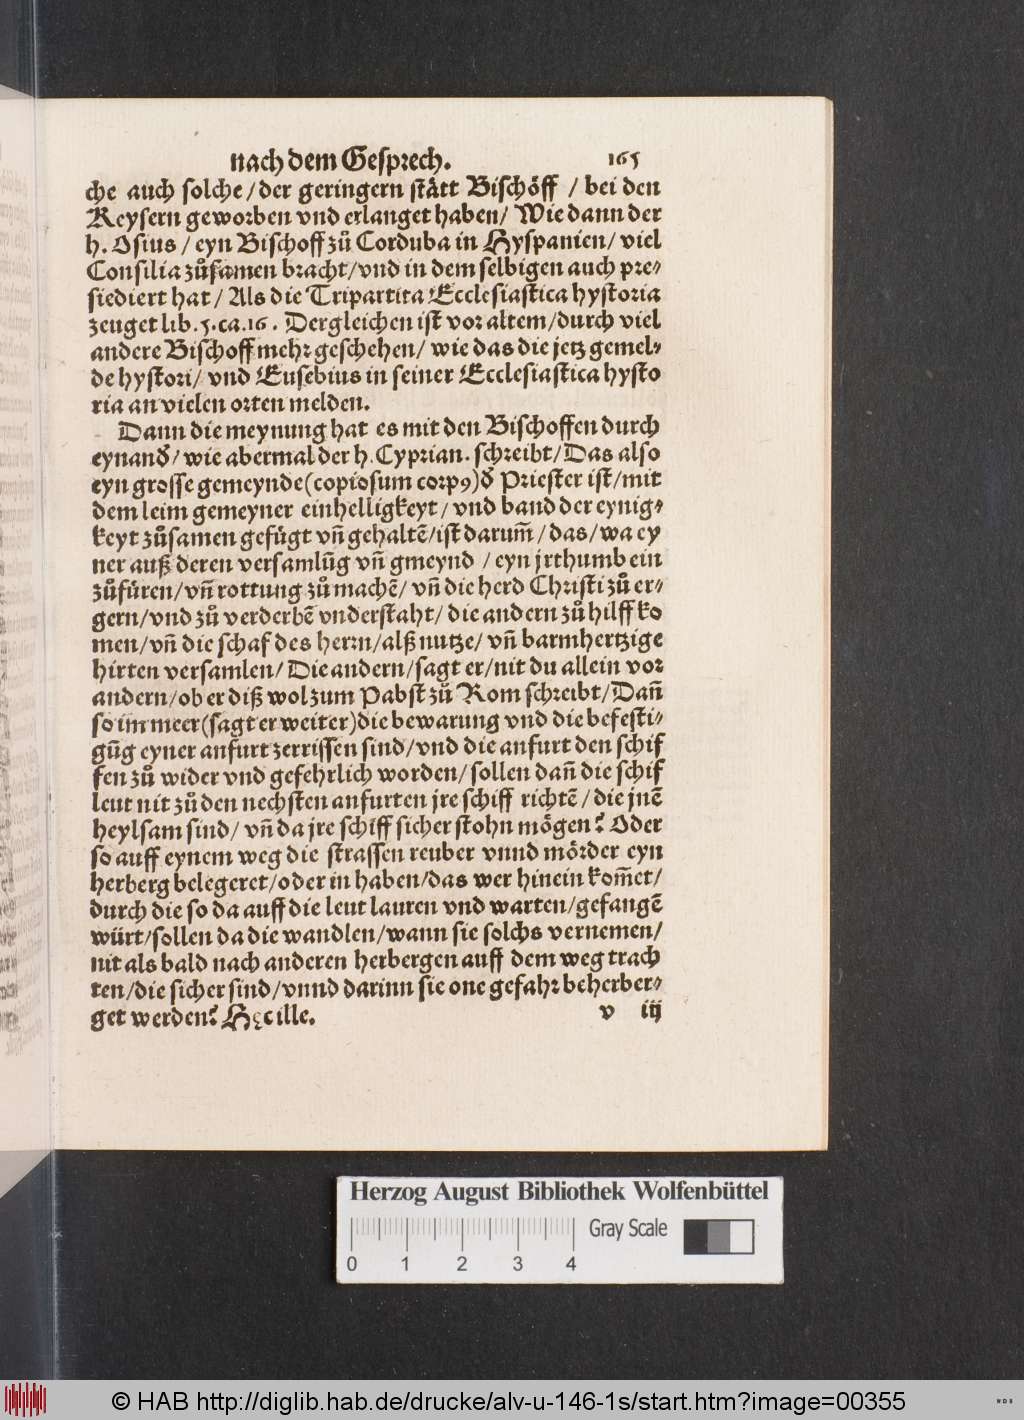 nach dem Gesprech. 165
che auch solche / der geringern stått Bischöff / bei den
Keysern geworben vnd erlanget haben / Wie dann der
h. Osius / eyn Bischoff zů Corduba in Hyspanien / viel
Consilia zůsamen bracht / vnd in dem selbigen auch pre⸗
siediert hat / Als die Tripartita Ecclesiastica hystoria
zeuget lib. 5. ca. 16. Dergleichen ist vor altem / durch viel
andere Bischoff mehr geschehen / wie das die jetz gemel⸗
de hystori / vnd Eusebius in seiner Ecclesiastica hysto
ria an vielen orten melden.
Dann die meynung hat es mit den Bischoffen durch
eynand̕ / wie abermal der h. Cyprian. schreibt / Das also
eyn grosse gemeynde (copiosum corpꝰ) d̕ Priester ist / mit
dem leim gemeyner einhelligkeyt / vnd band der eynig⸗
keyt zůsamen gefügt vñ gehaltẽ / ist darum̃ / das / wa ey
ner auß deren versamlũg vñ gmeynd / eyn jrthumb ein
zůfüren / vñ rottung zů machẽ / vñ die herd Christi zů er⸗
gern / vnd zů verderbẽ vnderstaht / die andern zů hilff ko
men / vñ die schaf des herrn / alß nutze / vñ barmhertzige
hirten versamlen / Die andern / sagt er / nit du allein vor
andern / ob er diß wol zum Pabst zů Rom schreibt / Dañ
so im meer (sagt er weiter) die bewarung vnd die befesti⸗
gũg eyner anfurt zerrissen sind / vnd die anfurt den schif
fen zů wider vnd gefehrlich worden / sollen dañ die schif
leut nit zů den nechsten anfurten jre schiff richtẽ / die jnẽ
heylsam sind / vñ da jre schiff sicher stohn mögen? Oder
so auff eynem weg die strassen reuber vnnd mörder eyn
herberg belegeret / oder in haben / das wer hinein kom̃et /
durch die so da auff die leut lauren vnd warten / gefangẽ
würt / sollen da die wandlen / wann sie solchs vernemen /
nit als bald nach anderen herbergen auff dem weg trach
ten / die sicher sind / vnnd darinn sie one gefahr beherber⸗
get werden? Hęc ille. v iij
Herzog August Bibliothek Wolfenbüttel
Gray Scale
0 1 2 3 4
© HAB http://diglib.hab.de/drucke/alv-u-146-1s/start.htm?image=00355